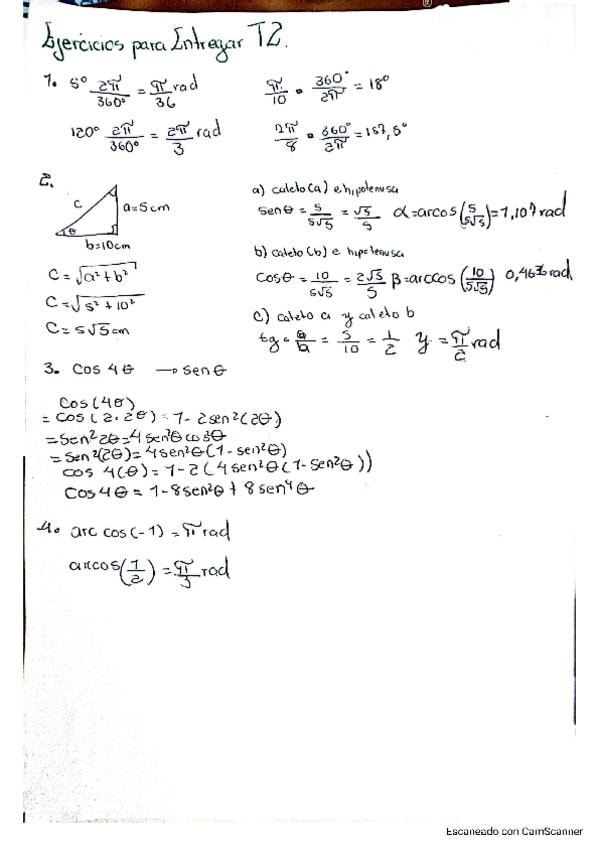 Ejercicios para Entregar T2.
1. 5° 2π/360° = π/36 rad    π/10 · 360°/2π = 18°
120° 2π/360° = 2π/3 rad    7π/8 · 360°/2π = 157,5°
2.
c
a=5cm
θ
b=10cm
C = √(a²+b²)
C = √(5²+10²)
C = 5√5 cm
a) cateto (a) e hipotenusa
senθ = 5/5√5 = √5/5  α = arcos(5/5√5) = 1,107 rad
b) cateto (b) e hipotenusa
cosθ = 10/5√5 = 2√5/5  β = arccos(10/5√5) 0,463 rad
c) cateto a y cateto b
tg = a/b = 5/10 = 1/2  y = π/2 rad
3. Cos 4θ → senθ
Cos(4θ)
= Cos(2·2θ) = 1 - 2sen²(2θ)
= Sen²2θ = 4sen²θcos²θ
= Sen²(2θ) = 4sen²θ(1 - sen²θ)
cos 4(θ) = 1 - 2(4sen²θ(1 - Sen²θ))
Cos 4θ = 1 - 8sen²θ + 8sen⁴θ
4. arc cos(-1) = π rad
arcos(1/2) = π/3 rad
Escaneado con CamScanner